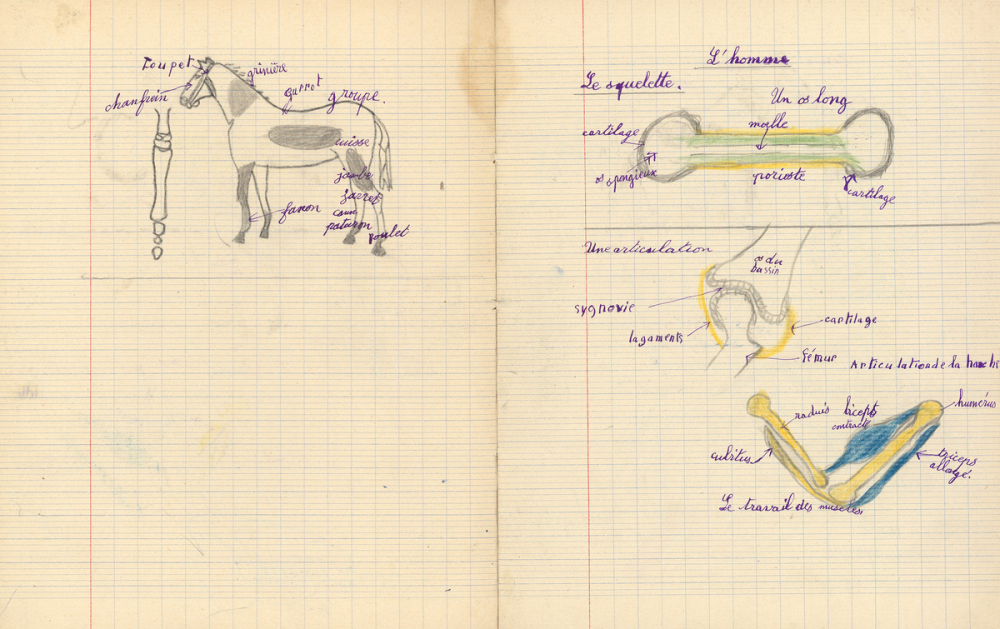 Toupet
chanfrein
grinière
garrot
groupe.
cuisse
jambe
jarret
canon
paturon
boulet
fanon
L'homme
Le squelette.
Un os long
cartilage
moëlle
os spongieux
perioste
cartilage
Une articulation
os du
bassin
sygnovie
lagaments
cartilage
fémur
Articulation de la hanche
raduis
biceps
contracté
humérus
cubitus
triceps
allongé.
Le travail des muscles.